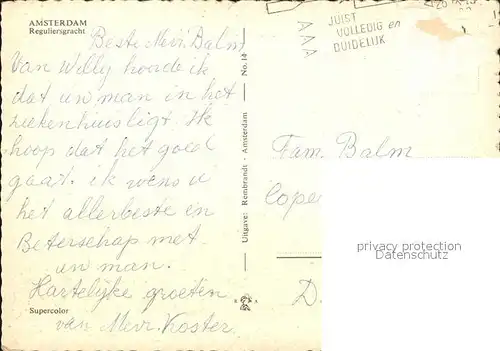 AMSTERDAM
Reguliersgracht
JUIST
VOLLEDIG en
DUIDELIJK
AAA
Beste Mevr. Balm
Van Willy hoorde ik
dat uw man in het
ziekenhuis ligt. Ik
hoop dat het goed
gaat. ik wens u
het allerbeste en
Beterschap met
uw man.
Hartelijke groeten
van Mevr. Koster.
Supercolor
Uitgave: Rembrandt - Amsterdam — No. 14
Fam. Balm
Cope
D.
privacy protection
Datenschutz